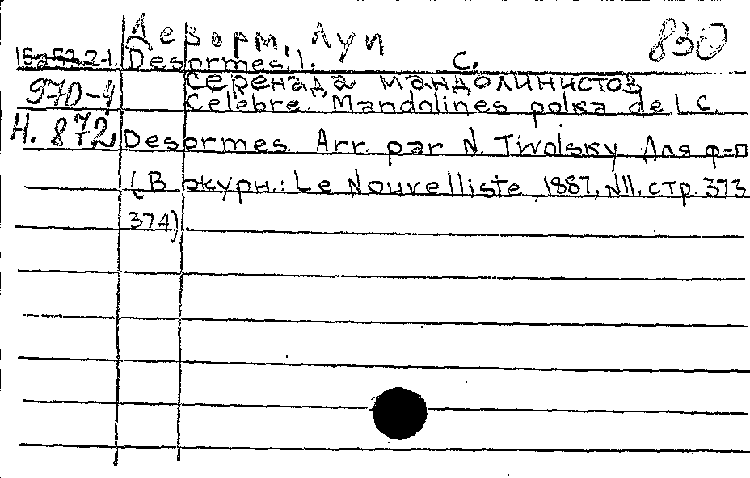 Дезорм, Луи 830
15а-52-2-1 Desormes, l. С.
970-4 Серенада мандолинистов
Celebre Mandolines polka de L C.
Н. 872 Desormes Arr par N Twolsky Для ф=п
(В журн.: Le Nouvelliste, 1887, N11, стр. 373
374)